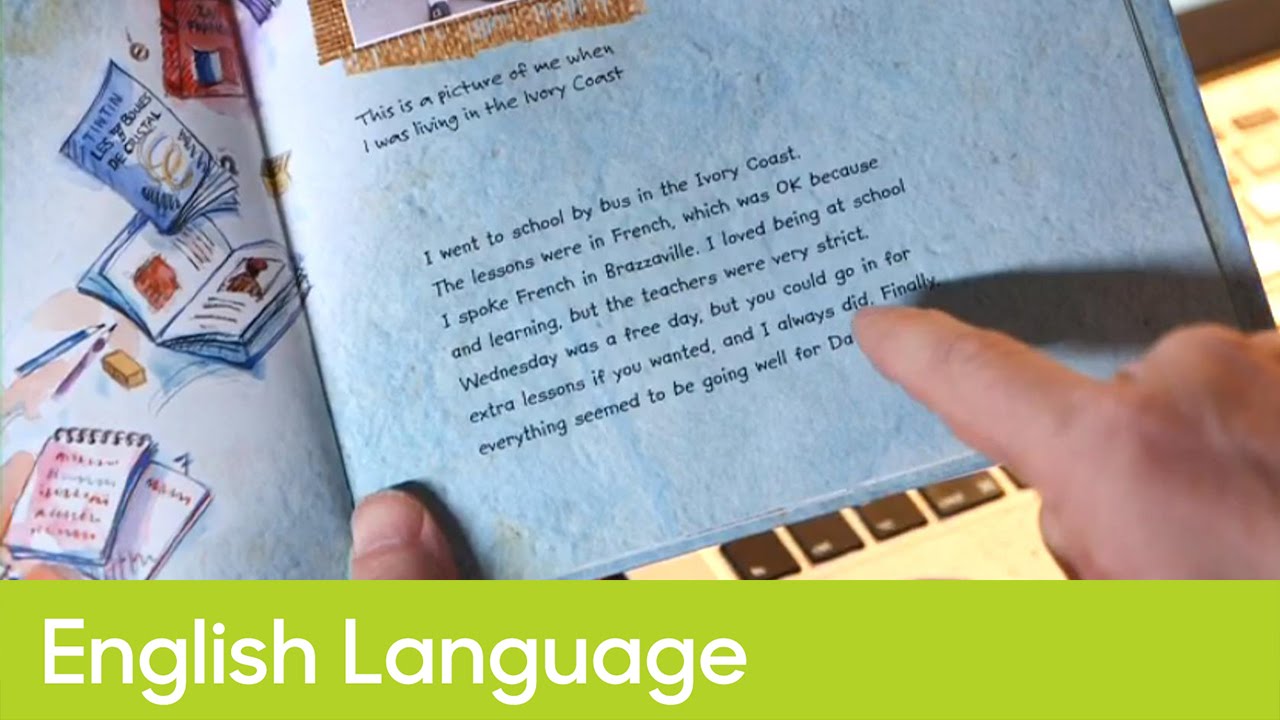 TINTIN
LES 7 BOULES
DE CRISTAL
This is a picture of me when
I was living in the Ivory Coast
I went to school by bus in the Ivory Coast.
The lessons were in French, which was OK because
I spoke French in Brazzaville. I loved being at school
and learning, but the teachers were very strict.
Wednesday was a free day, but you could go in for
extra lessons if you wanted, and I always did. Finally,
everything seemed to be going well for Da
English Language